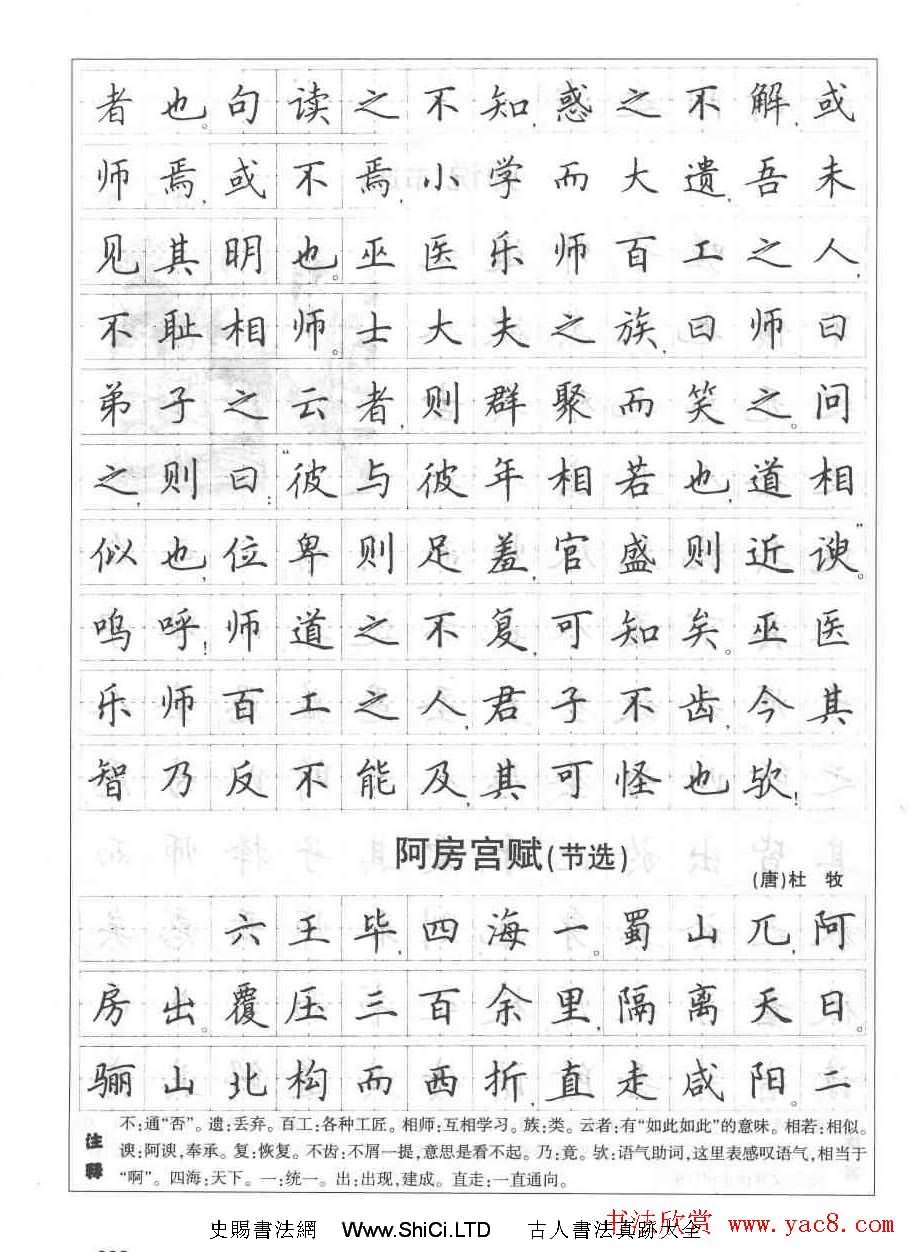 者也。句读之不知,惑之不解,或
师焉,或不焉,小学而大遗,吾未
见其明也。巫医乐师百工之人,
不耻相师。士大夫之族,曰师曰
弟子之云者,则群聚而笑之。问
之,则曰:“彼与彼年相若也,道相
似也,位卑则足羞,官盛则近谀。”
呜呼!师道之不复,可知矣。巫医
乐师百工之人,君子不齿,今其
智乃反不能及,其可怪也欤!
阿房宫赋(节选)
(唐)杜 牧
六王毕,四海一。蜀山兀,阿
房出。覆压三百余里,隔离天日。
骊山北构而西折,直走咸阳。二
注释
不:通“否”。遗:丢弃。百工:各种工匠。相师:互相学习。族:类。云者:有“如此如此”的意味。相若:相似。
谀:阿谀,奉承。复:恢复。不齿:不屑一提,意思是看不起。乃:竟。欤:语气助词,这里表感叹语气,相当于
“啊”。四海:天下。一:统一。出:出现,建成。直走:一直通向。
书法欣赏 www.yac8.com
史賜書法網 Www.ShiCi.LTD 古人書法真跡大全